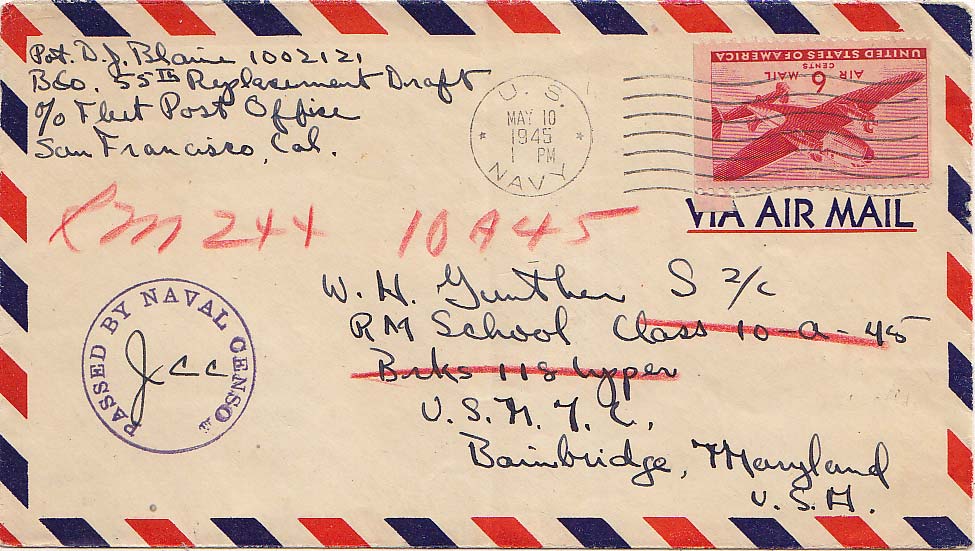 Pvt. D.J. Blaine 1002121
B Co. 55th Replacement Draft
c/o Fleet Post Office
San Francisco, Cal.
U.S.
MAY 10
1945
1 PM
NAVY
UNITED STATES OF AMERICA
AIR MAIL
6 CENTS
VIA AIR MAIL
RM 244 10A45
PASSED BY NAVAL CENSOR
JCC
W. H. Gunther S 2/c
RM School Class 10-A-45
Brks 118 Upper
U.S.N.T.C.
Bainbridge, Maryland
U.S.A.